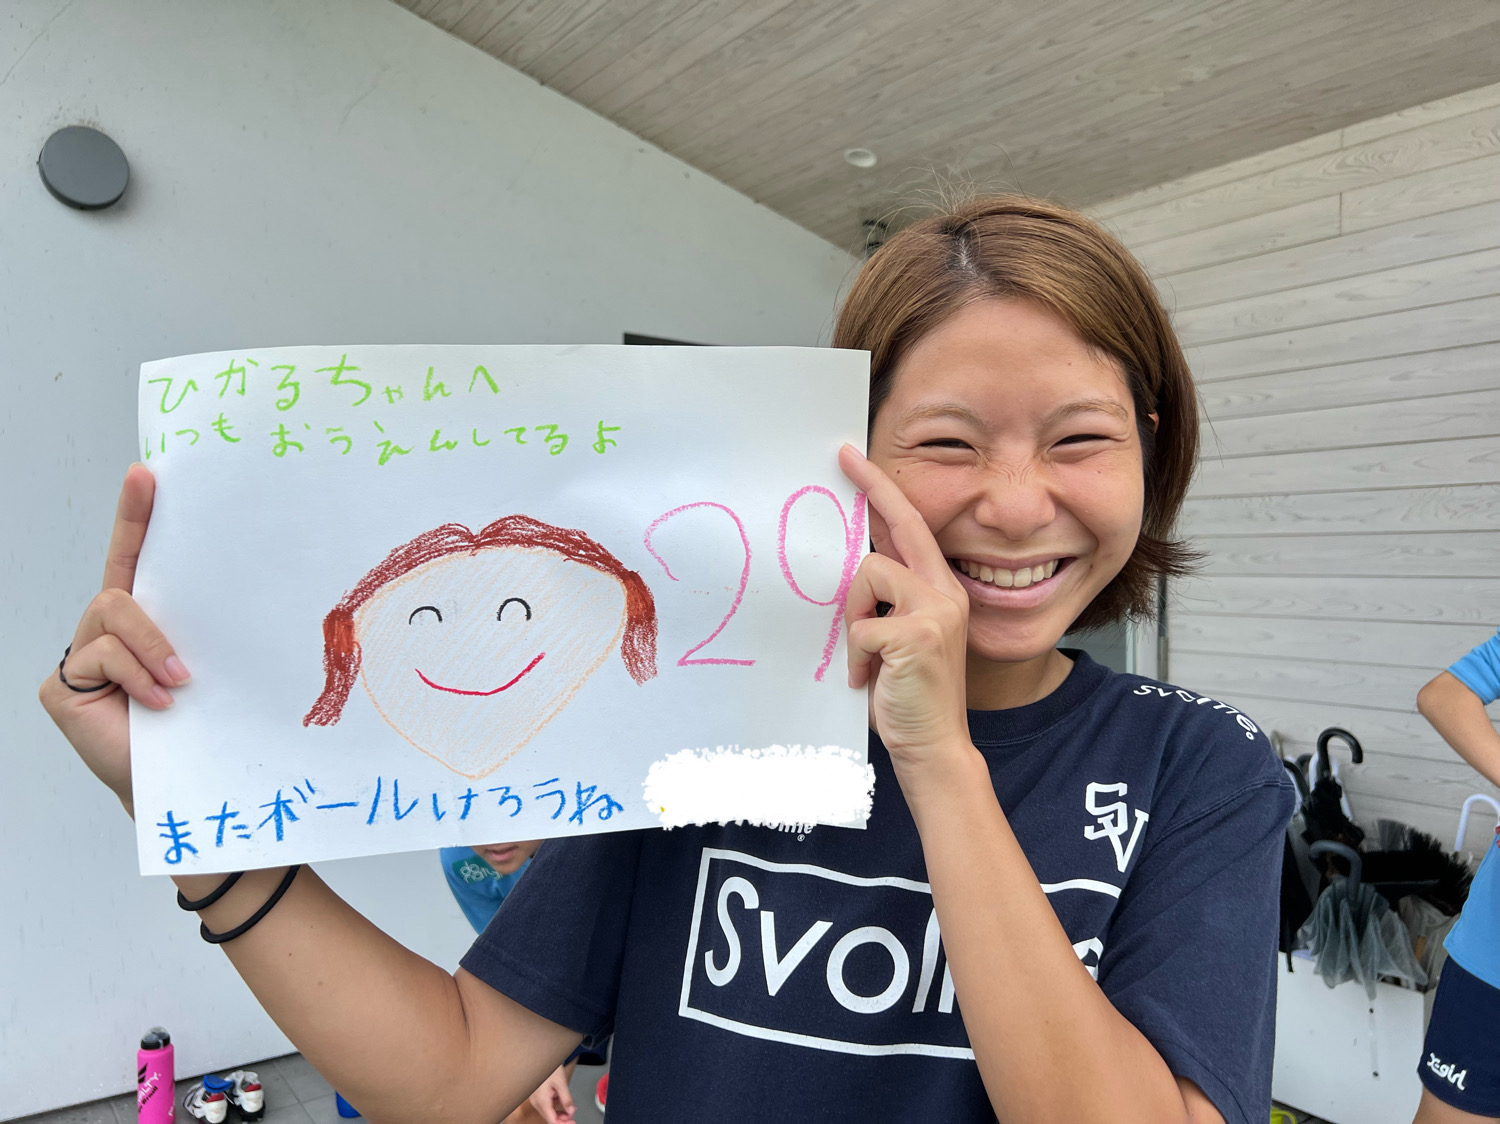 ひかるちゃんへ
いつも おうえんしてるよ
29
またボールけろうね
SV
Svol
X-girl